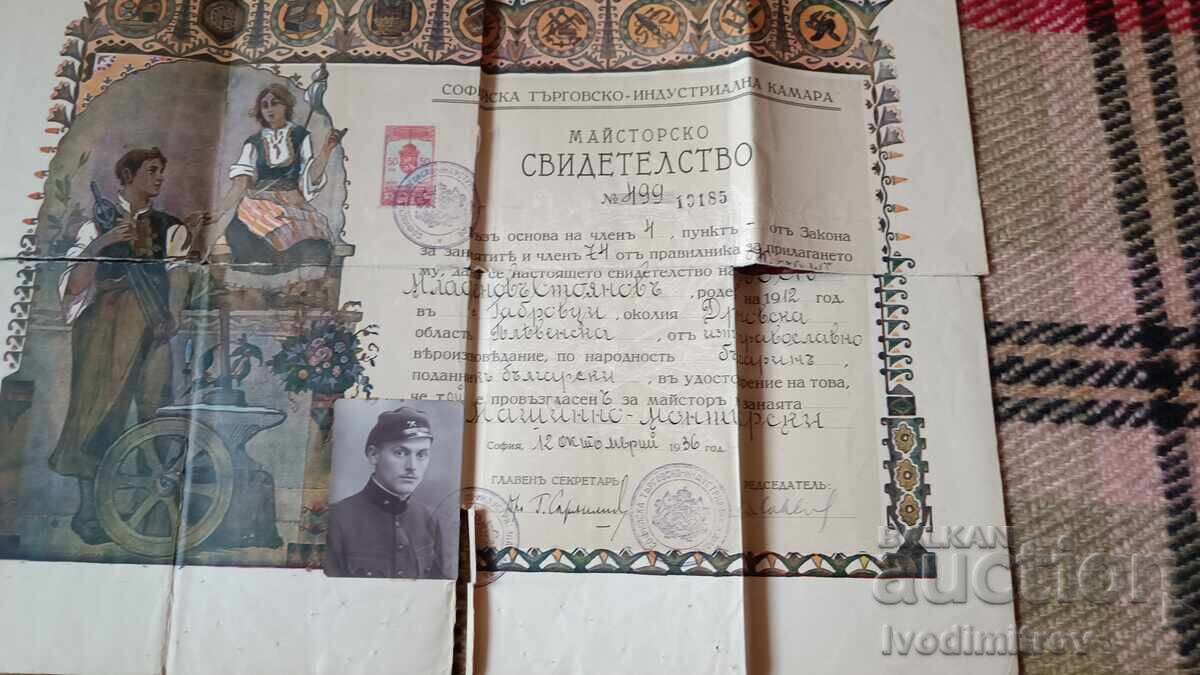 СОФИЙСКА ТЪРГОВСКО-ИНДУСТРИАЛНА КАМАРА
МАЙСТОРСКО
СВИДЕТЕЛСТВО
№ 499 10185
50 50
Въз основа на членъ 4, пунктъ - отъ Закона
за занаятитѣ и членъ 74 отъ правилника за прилагането
му, дава се настоящето свидетелство на
Младеновъ Стояновъ, роденъ на 1912 год.
въ Габровци, околия Дрѣновска
область Плѣвенска, отъ изт. православно
вѣроизповѣдание, по народность българинъ,
поданникъ български, въ удостоѣрение на това,
че той е провъзгласенъ за майсторъ занаята
Машинно-монтьорски
София, 12 октомврий 1936 год.
ГЛАВЕНЪ СЕКРЕТАРЬ: ПРЕДСЕДАТЕЛЬ:
BALKAN
auction
Ivodimitrov